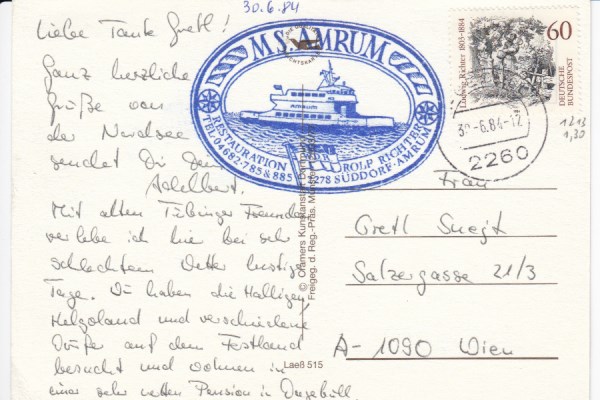 30.6.84
Liebe Tante Gretl!
Ganz herzliche
Grüße von
der Nordsee
sendet Dir Dein
Adelbert.
Mit alten Tübinger Freunden
verlebe ich hier bei sehr
schlechtem Wetter lustige
Tage. Wir haben die Halligen,
Helgoland und verschiedene
Dörfer auf dem Festland
besucht und wohnen in
einer sehr netten Pension in Dagebüll.
M.S. AMRUM
RESTAURATION
ROLF RICHTER
TEL. 04682-785 & 885
2278 SÜDDORF-AMRUM
© Cramers Kunstanstalt
Freigeg. d. Reg.-Präs.
Laeß 515
Ludwig Richter 1803-1884
60
DEUTSCHE
BUNDESPOST
30.-6.84-12
2260
1213
1,30
Frau
Gretl
Salzergasse 21/3
A-1090 Wien